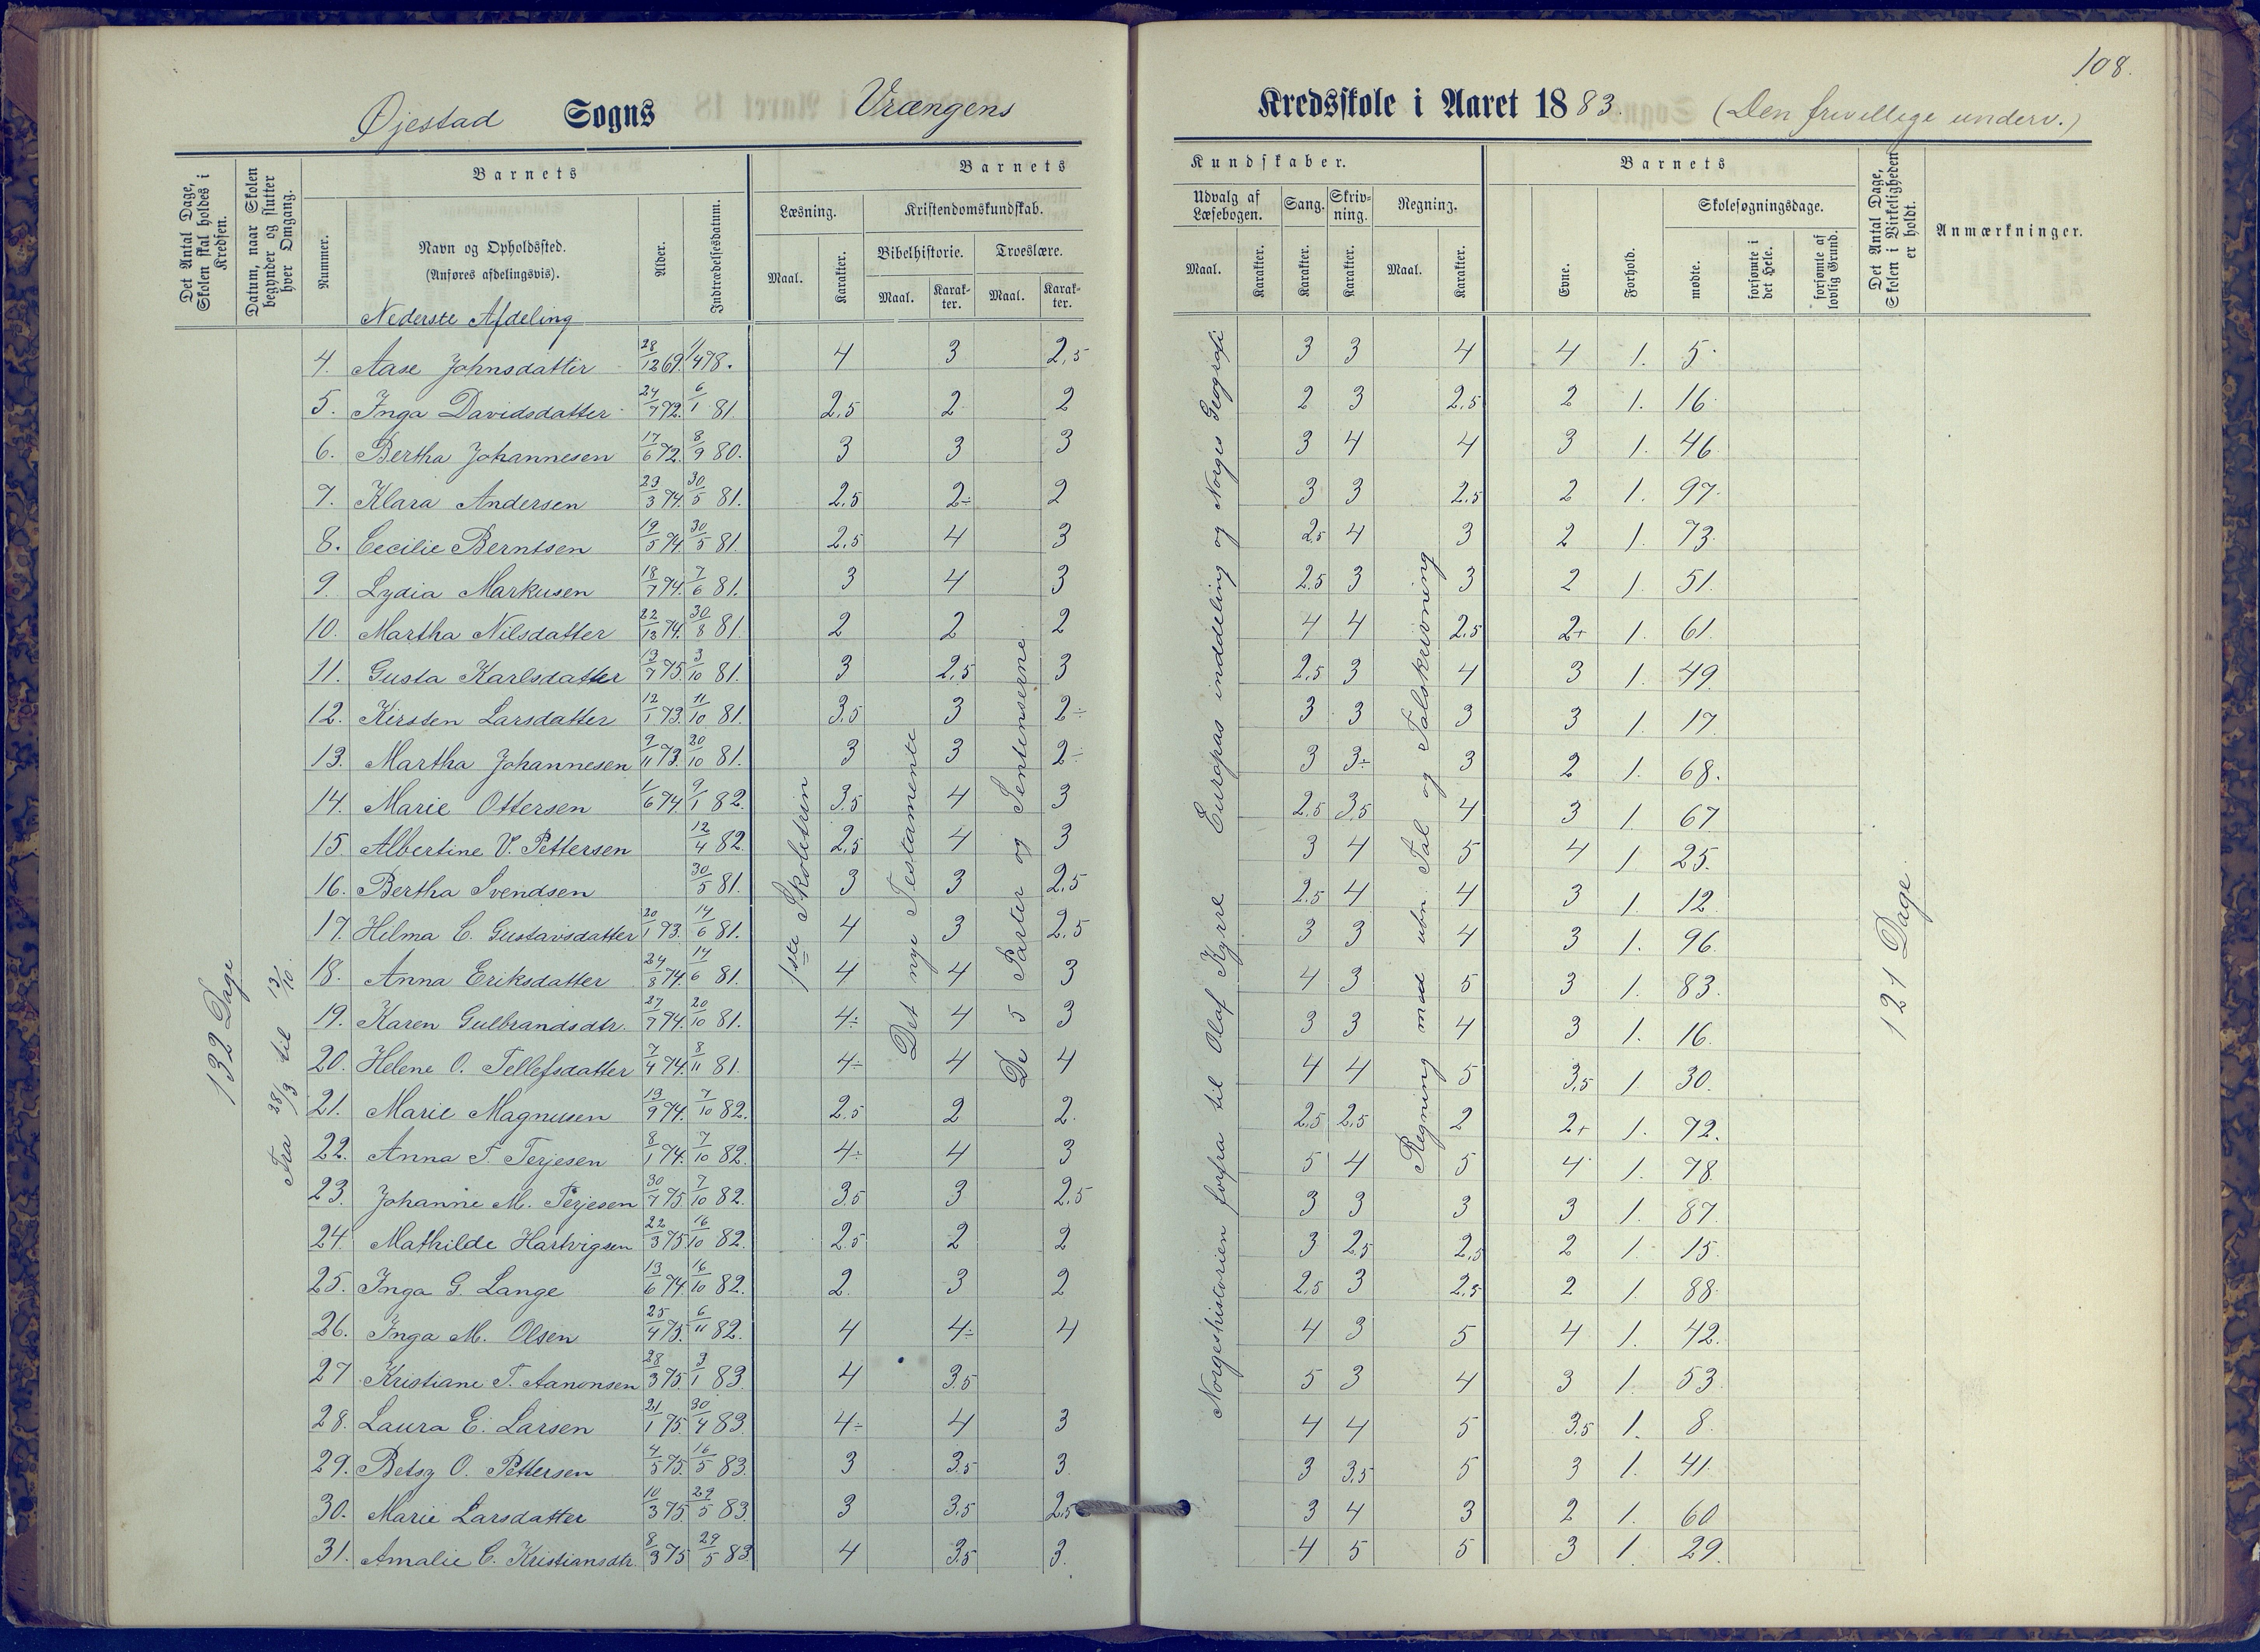 108.
Øjestad Sogns Vrængens Kredsskole i Aaret 1883. (Den frivillige underv.)
Det Antal Dage, Skolen skal holdes i Kredsen.
Datum, naar Skolen begynder og slutter hver Omgang.
Barnets
Nummer.
Navn og Opholdssted. (Anføres afdelingsvis).
Alder.
Indtrædelsesdatum.
Barnets Kundskaber.
Læsning. Maal. Karakter.
Kristendomskundskab.
Bibelhistorie. Maal. Karakter.
Troeslære. Maal. Karakter.
Udvalg af Læsebogen. Maal. Karakter.
Sang. Karakter.
Skrivning. Karakter.
Regning. Maal. Karakter.
Barnets
Evne.
Forhold.
Skolesøgningsdage.
mødte.
forsømte i det Hele.
forsømte af lovlig Grund.
Det Antal Dage, Skolen i Virkeligheden er holdt.
Anmærkninger.
Nederste Afdeling
132 Dage
Fra 28/3 til 13/10.
1ste Skoletrin
Det nye Testamente
De 5 Parter og Sentenserne
Norgeshistorien forfra til Olaf Kyrre Europas inddeling og Norges Geografi
Regning med ubn. Tal og Talskrivning
121 Dage
4. Aase Johnsdatter 28/12 69. 1/4 78. 4 3 2,5 3 3 4 4 1. 5.
5. Inga Davidsdatter 24/7 72. 6/1 81 2,5 2 2 2 3 2,5 2 1. 16.
6. Bertha Johannesen 17/6 72. 8/9 80. 3 3 3 3 4 4 3 1. 46
7. Klara Andersen 29/3 74. 30/5 81. 2,5 2÷ 2 3 3 2,5 2 1. 97.
8. Cecilie Berntsen 19/5 74. 30/5 81. 2,5 4 3 2,5 4 3 2 1. 73.
9. Lydia Markusen 18/7 74. 7/6 81. 3 4 3 2,5 3 3 2 1. 51.
10. Martha Nilsdatter 22/12 74. 30/8 81. 2 2 2 4 4 2,5 2+ 1. 61.
11. Gusta Karlsdatter 13/7 75. 3/10 81. 3 2,5 3 2,5 3 4 3 1. 49.
12. Kirsten Larsdatter 12/1 73. 11/10 81. 3,5 3 2÷ 3 3 3 3 1. 17.
13. Martha Johannesen 9/11 73. 20/10 81. 3 3 2÷ 3 3÷ 3 2 1. 68.
14. Marie Ottersen 1/6 74. 9/1 82. 3,5 4 3 2,5 3,5 4 3 1. 67
15. Albertine V. Pettersen 12/4 82. 2,5 4 3 3 4 5 4 1 25.
16. Bertha Svendsen 30/5 81. 3 3 2,5 2,5 4 4 3 1. 12.
17. Helma C. Gustavsdatter 20/1 73. 14/6 81. 4 3 2,5 3 3 4 3 1. 96.
18. Anna Eriksdatter 24/8 74. 14/6 81. 4 4 3 4 3 5 3 1. 83.
19. Karen Gulbrandsdtr. 27/7 74. 20/10 81. 4÷ 4 3 3 3 4 3 1. 16.
20. Helene O. Tellefsdatter 7/4 74. 8/11 81. 4÷ 4 4 4 4 5 3,5 1. 30.
21. Marie Magnusen 13/9 74. 7/10 82. 2,5 2 2. 2,5 2,5 2 2+ 1. 72.
22. Anna T. Terjesen 8/1 74. 7/10 82. 4÷ 4 3 5 4 5 4 1. 78.
23. Johanne M. Terjesen 30/7 75. 7/10 82. 3,5 3 2,5 3 3 3 3 1. 87.
24. Mathilde Hartvigsen 22/3 75. 16/10 82. 2,5 2 2 3 2,5 2,5 2 1. 15.
25. Inga G. Lange 13/6 74. 16/10 82. 2. 3 2 2,5 3 2,5 2 1. 88.
26. Inga M. Olsen 25/4 75. 6/11 82. 4 4÷ 4 4 3 5 4 1. 42.
27 Kristiane T. Aanonsen 28/3 75. 3/1 83. 4 3,5 5 3 4 3 1. 53.
28. Laura E. Larsen 21/1 75. 30/4 83. 4÷ 4 3 4 4 5 3,5 1. 8.
29. Betsy O. Pettersen 4/5 75. 16/5 83. 3 3,5 3. 3 3,5 5 3 1. 41.
30. Marie Larsdatter 10/3 75. 29/5 83. 3 3,5 2,5 3 4 3 2 1. 60
31. Amalie C. Kristiansdtr. 8/3 75 29/5 83. 4 3,5 3. 4 5 5 3 1. 29.